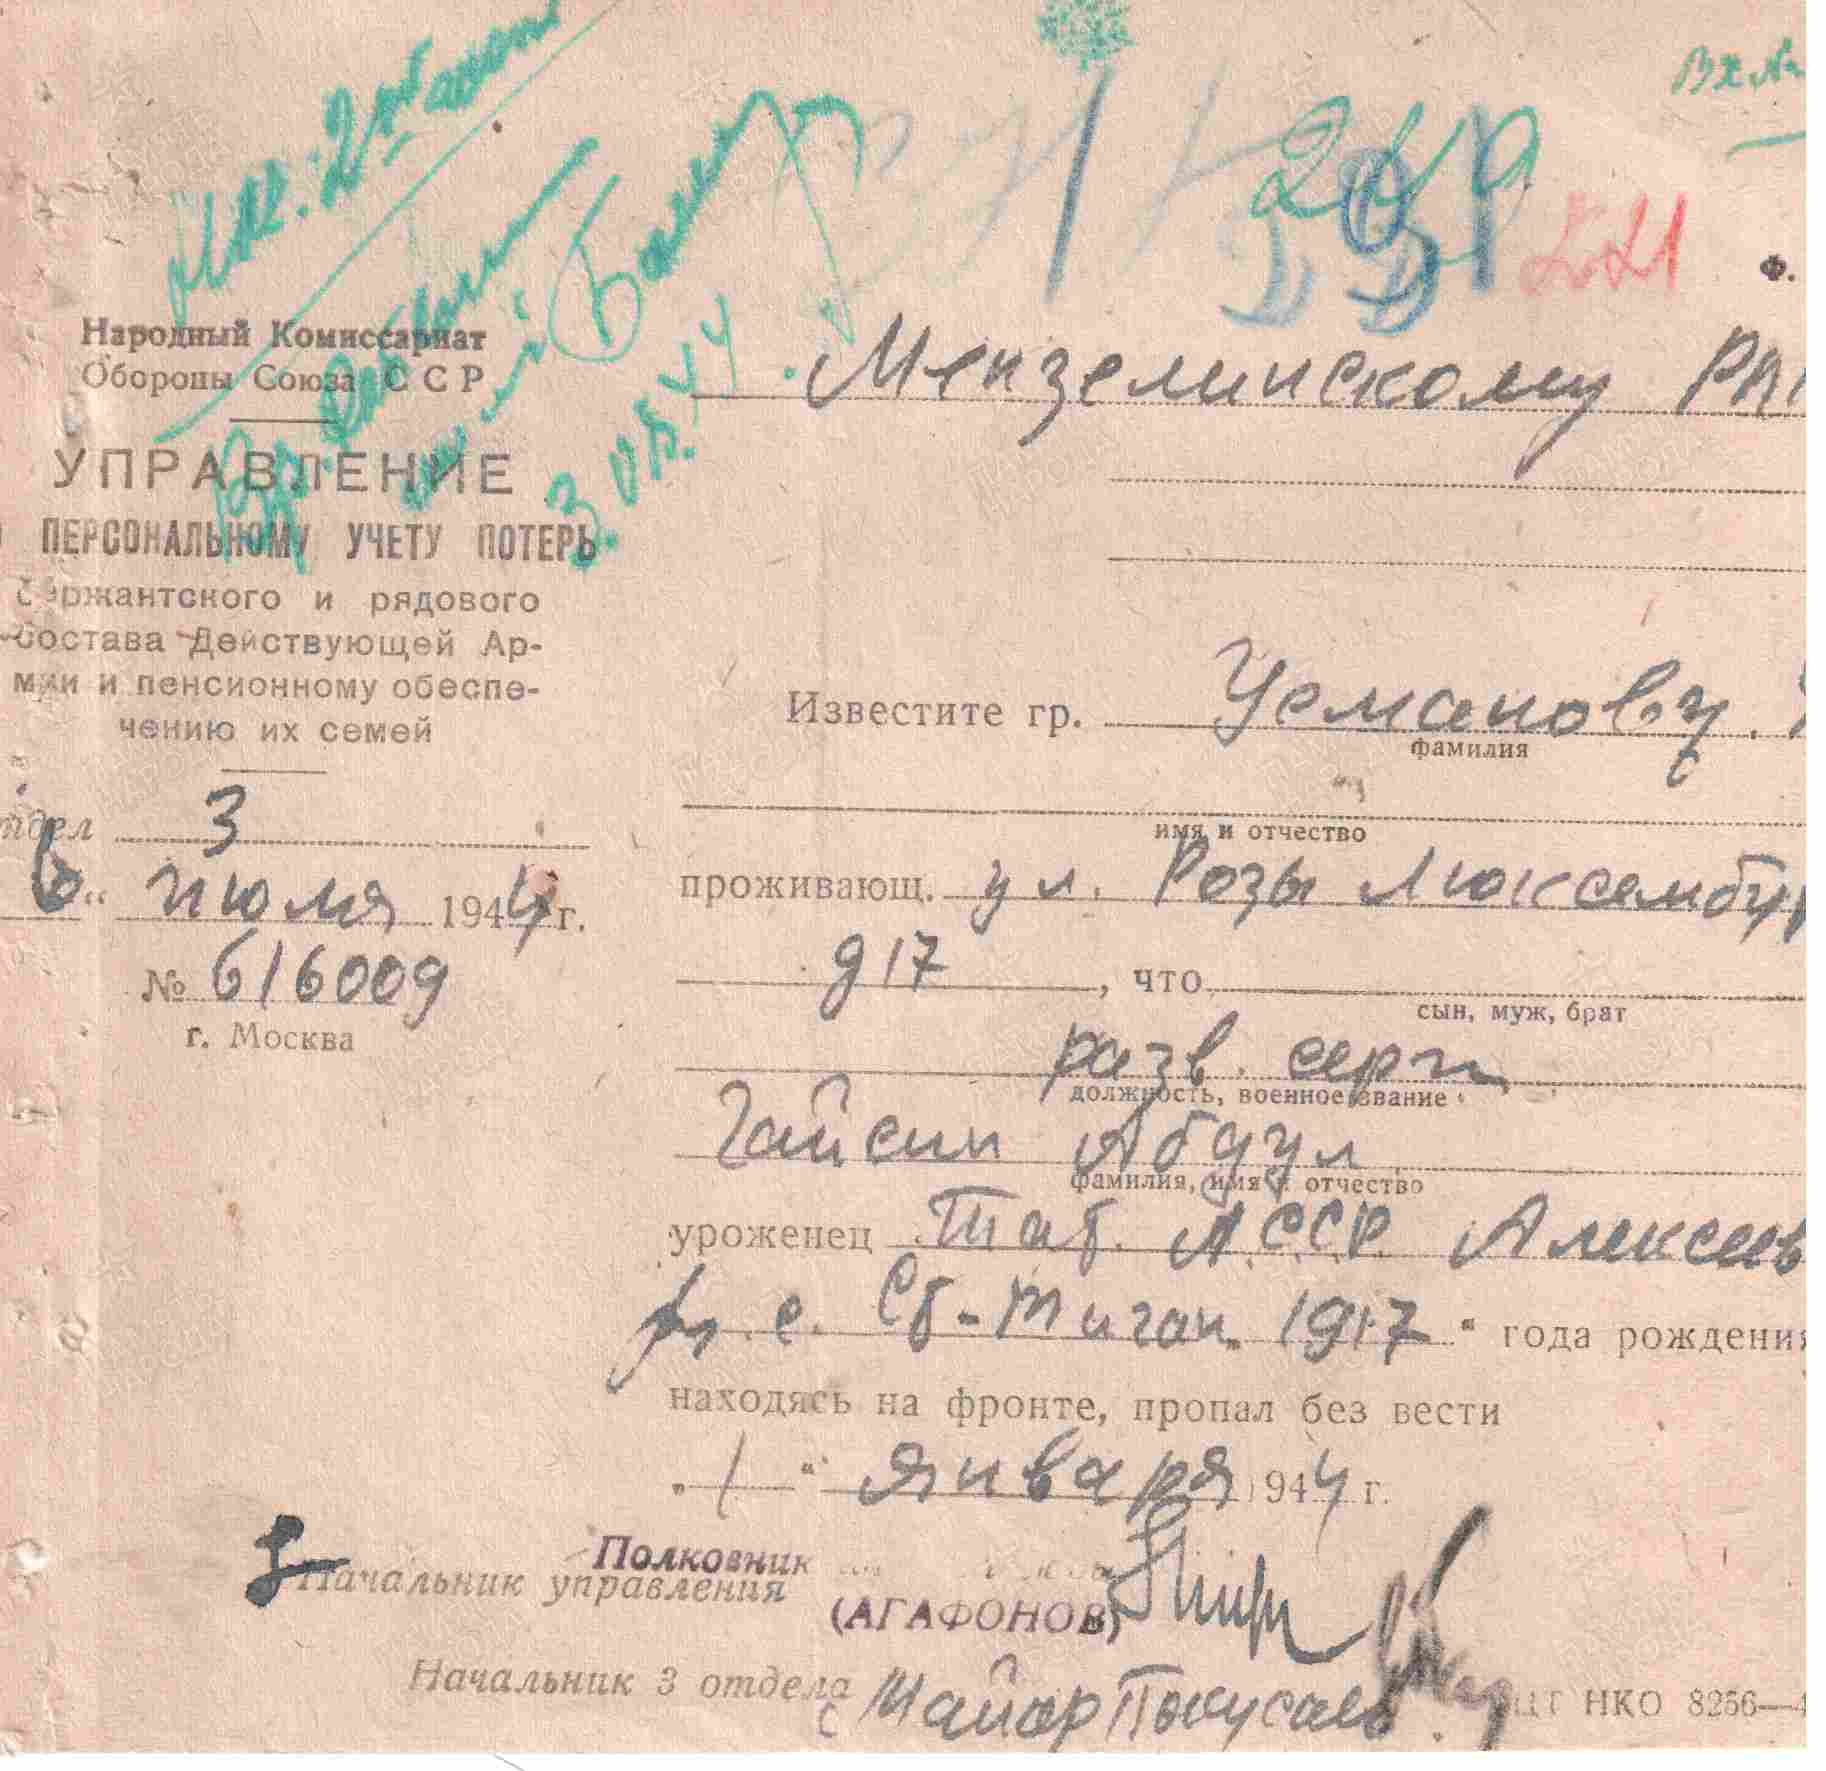 Вх №
240
221
Ф.
Народный Комиссариат
Обороны Союза ССР
УПРАВЛЕНИЕ
ПЕРСОНАЛЬНОМУ УЧЕТУ ПОТЕРЬ
сержантского и рядового
состава Действующей Ар-
мии и пенсионному обеспе-
чению их семей
отдел 3
6 " июля 1944 г.
№ 616009
г. Москва
3.VIII.44
Мензелинскому РВК
Известите гр. Усманову.
фамилия
имя и отчество
проживающ. ул. Розы Люксембур
д 17 , что
сын, муж, брат
разв. серж
должность, военное звание
Гайсин Абдул
фамилия, имя и отчество
уроженец Тат. АССР Алексеев
с. Сб-Тиган. 1917 " года рождения
находясь на фронте, пропал без вести
" 1 " января 1944 г.
Полковник
Начальник управления
(АГАФОНОВ)
Начальник 3 отдела
Майор Покусаев
ЦТ НКО 8256—4